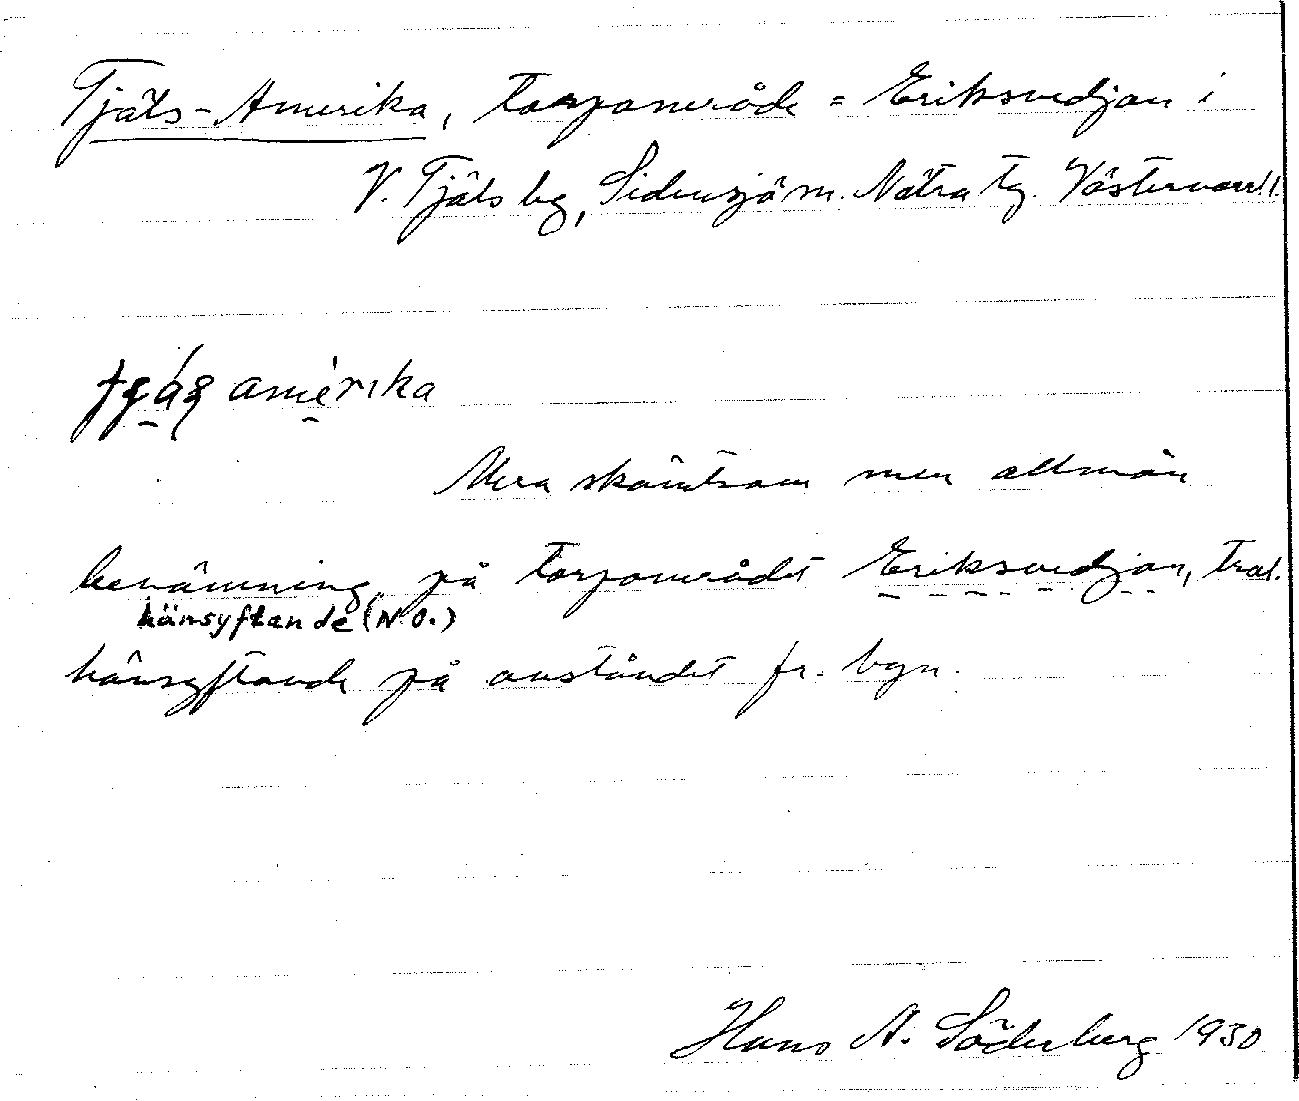 Tjäls-Amerika, torpområde = Eriksvedjan i
V. Tjäls by, Sidensjö sn. Nätra tg. Västernorrl.l.
amerika
Mera skämtsam men allmän
benämning på torpområdet Eriksvedjan, trol.
hänsyftande (N.O.)
hänsyftande på avståndet fr. byn.
Hans A. Söderberg 1930